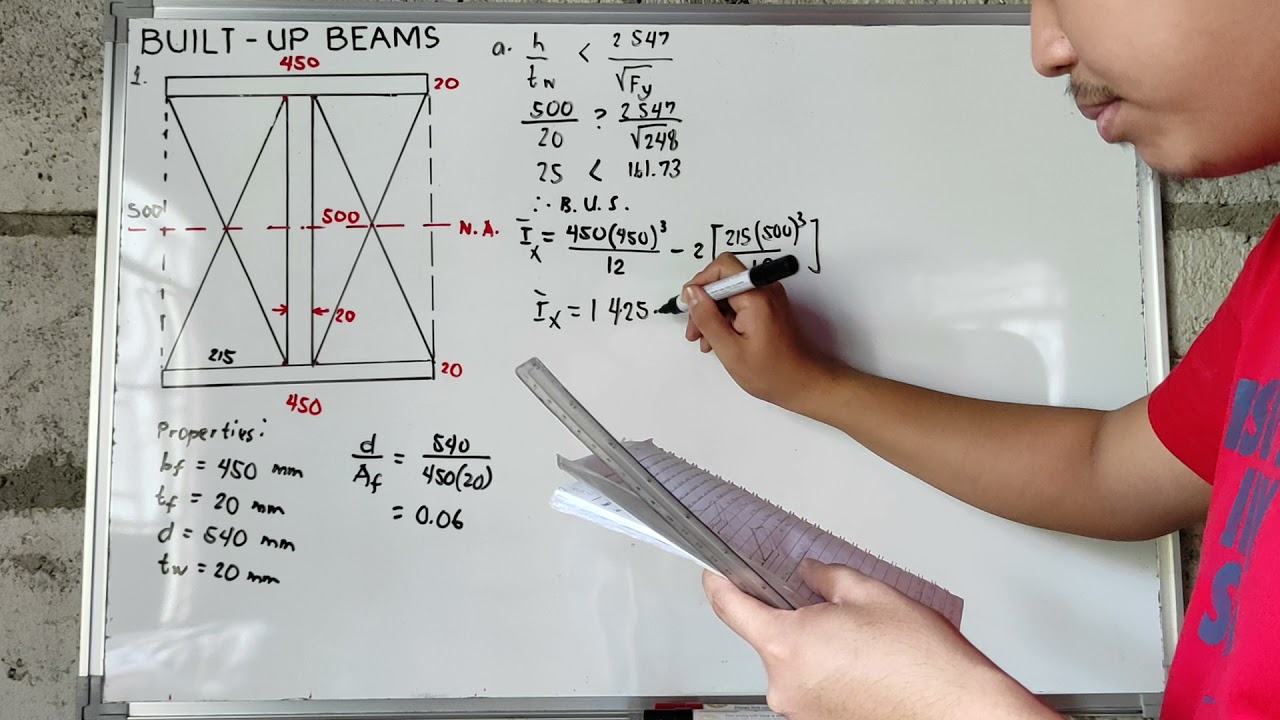 BUILT-UP BEAMS
1.
450
20
500
500
N.A.
20
215
20
450
Properties:
bf = 450 mm
tf = 20 mm
d = 540 mm
tw = 20 mm
d/Af = 540/450(20)
= 0.06
a. h/tw < 2547/√Fy
500/20 ? 2547/√248
25 < 161.73
∴ B.U.S.
Ix = 450(450)³/12 - 2[215(500)³/
Ix = 1 425